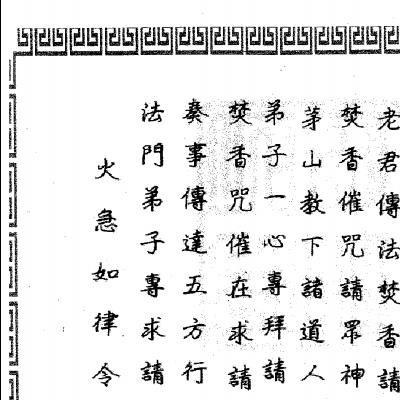 老君傳法焚香請
焚香催咒請眾神
茅山教下諸道人
弟子一心專拜請
焚香咒催在求請
奏事傳達五方行
法門弟子專求請
火急如律令